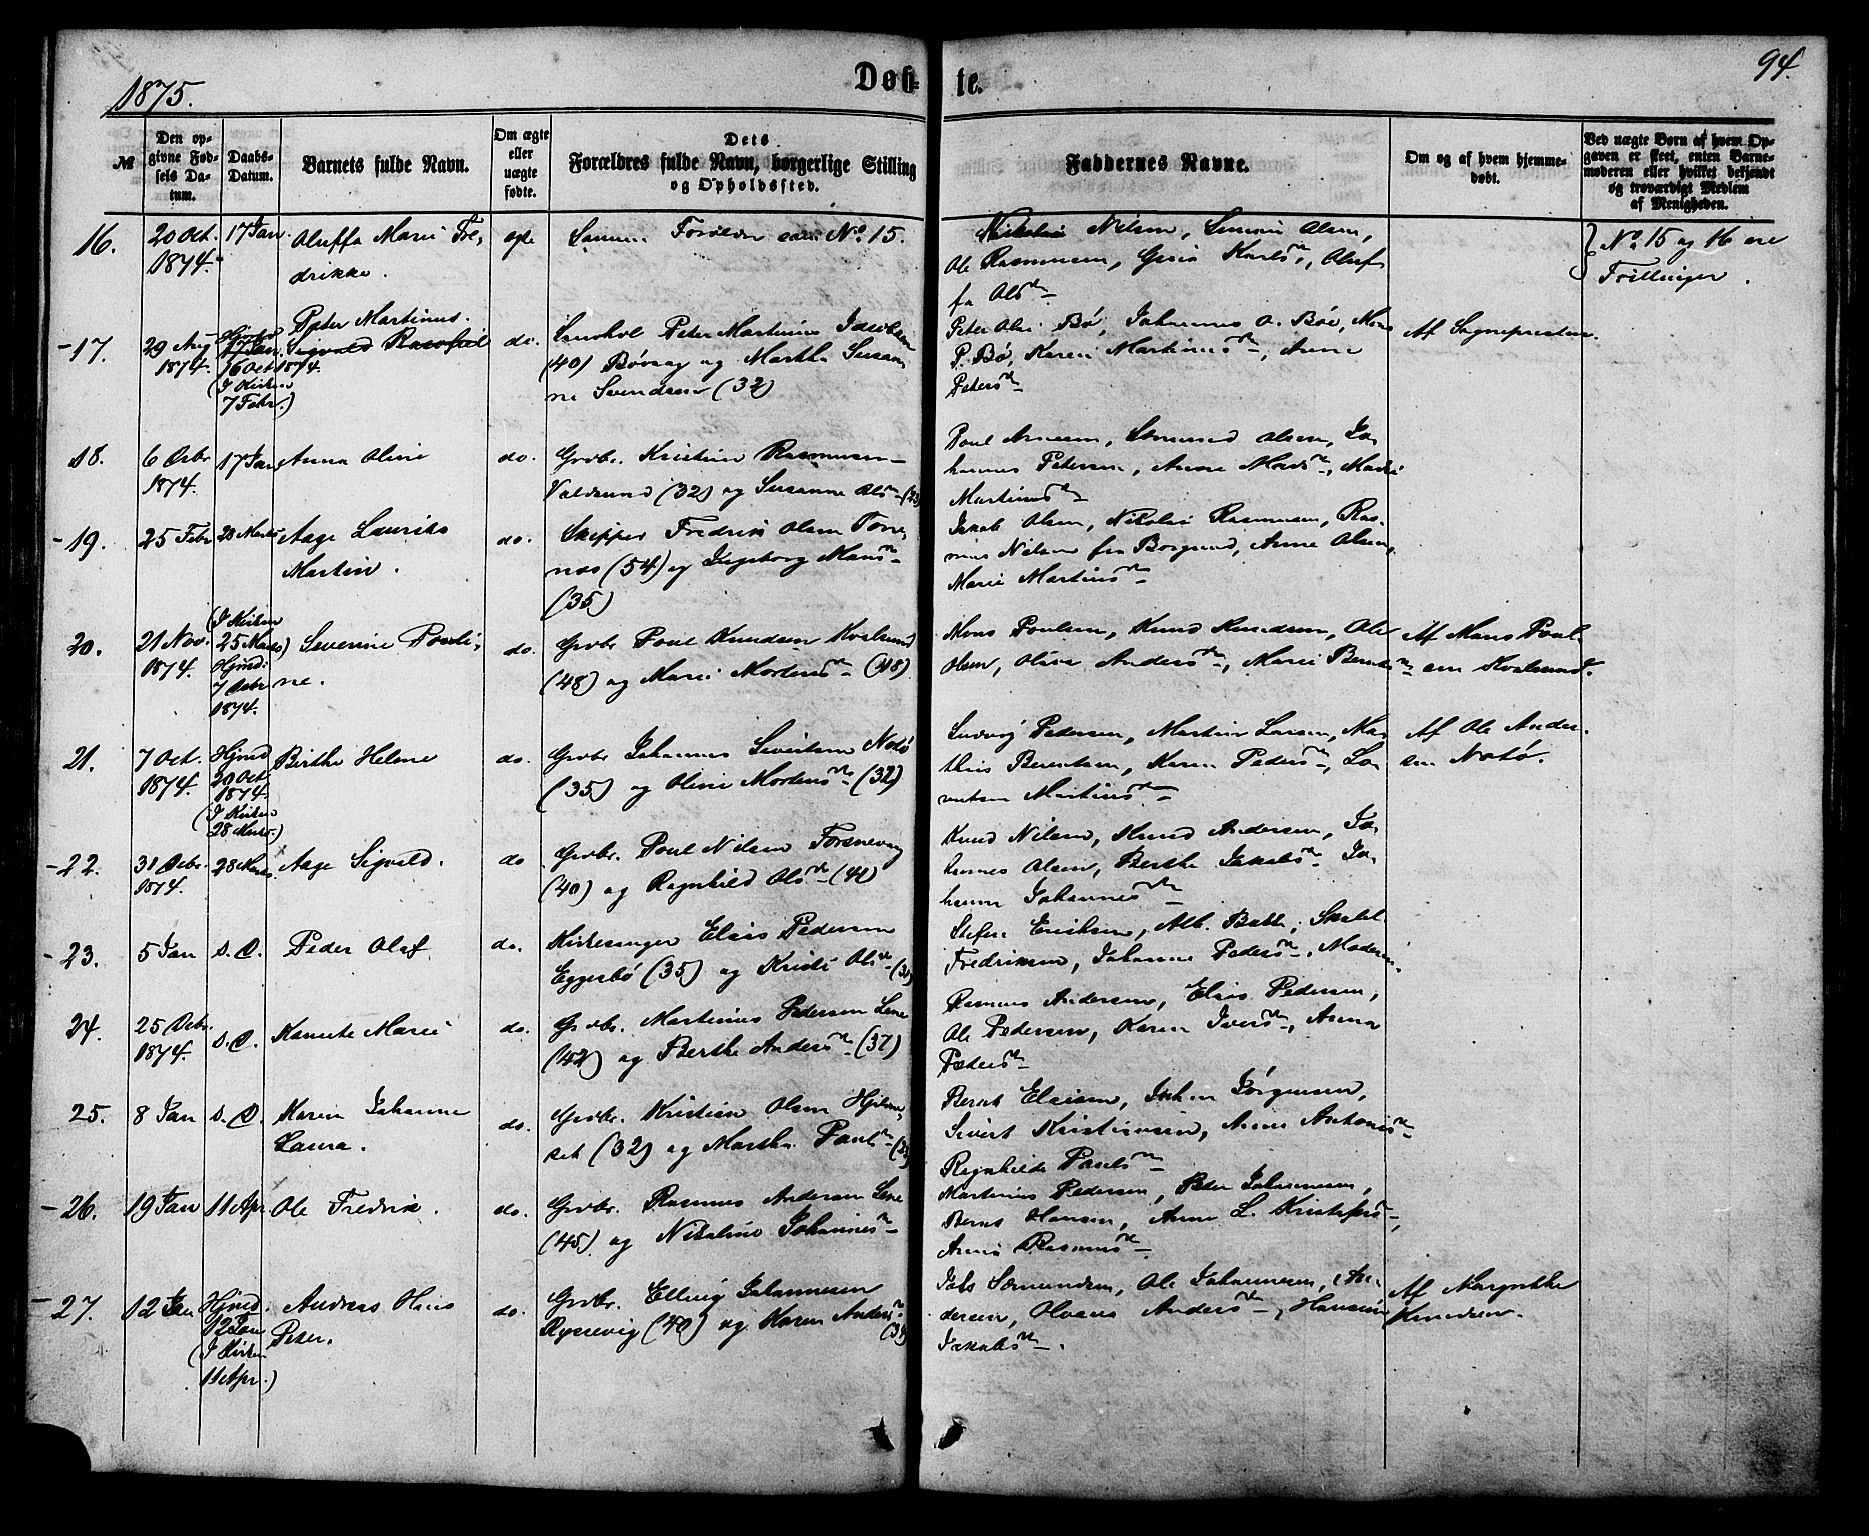 1875.
Døb- te.
94.
№
Den opgivne Fødsels Datum.
Daabs-Datum.
Barnets fulde Navn.
Om ægte eller uægte fødte.
Dets Forældres fulde Navn, borgerlige Stilling og Opholdssted.
Faddernes Navne.
Om og af hvem hjemmedøbt.
Ved uægte Børn af hvem Opgaven er skeet, enten Barnemoderen eller hvilket bekjendt og troværdigt Medlem af Menigheden.
16.
20 Oct. 1874.
17 Jan
Oluffa Marie Fredrikke.
Samme Forældre som No 15.
Nikolai Nilsen, Simon Olsen,
Ole Rasmussen, Karlsdr, Oluf
fa Olsdr
No 15 og 16 ere
Trillinger.
-17.
29 Aug 1874.
Hjmd 17 Jan. 16 Oct 1874. (I Kirken 7 Febr.)
Peter Martinus.
Sigvald
do.
Peter Martinus Jakobsen
(40) Bøvaag og Martha Susan
ne Svendsen (32)
Peter Olsen Bø, Johannes O. Bøe, Mons
P. Bø, Karen Martinusdr, Anne
Petersdr
Af Sognepresten.
18.
6 Decbr 1874.
17 Jan
Anna Oline
do.
Grdbr. Kristian Rasmussen
Voldsund (32) og Susanne Olsdr
Poul Arnesen, Sæmund Olsen, Jo
hannes Petersen, Anne Monsdr, Marie
Martinusdr
-19.
25 Febr
28 Marts
Aage Lauritz
Martin.
do.
Skipper Fredrik Olsen Torve
næs (54) og Ingeborg Monsdr
(35)
Jakob Olsen, Nikolai Rasmussen, Ras
mus Nilsen fra Borgund, Anne Olsen,
Marie Martinsdr
20.
21 Nov. 1874.
(I Kirken 25 Marts) Hjmd: 7 Decbr 1874.
Severine Pauli
ne.
do.
Grdbr. Poul Knudsen Kvalsund
(48) og Marie Mortensdr (48)
Mons Poulsen, Knud Knudsen, Ole
Olsen, Olina Andersdr, Marie Berntsdr
Af Mons Poul
sen Kvalsund.
21.
7 Oct. 1874.
Hjmd 20 Oct. 1874. (I Kirken 28 Marts.)
Birthe Helene
do.
Grdbr. Johannes Sivertsen Notø
(35) og Oline Mortensdr (32)
Ludvig Pedersen, Martin Larsen, Ma
thias Berentsen, Karen Pedersdr, Lo
rentse Martinsdr
Af Ole Ander
sen Notø.
-22.
31 Decbr. 1874.
28 Marts.
Aage Sigvald.
do
Grdbr. Poul Nilsen Torsnevaag
(40) og Ragnhild Olsdr (41)
Knud Nilsen, Knud Andersen, Jo
hannes Olsen, Berthe Jakobsdr Jo
hanne Johannesdr
-23.
5 Jan
s. D.
Peder Olaf
do.
Kirkesanger Elias Pedersen
Eggesbø (35) og Kristi Olsdr
Steffen Eriksen, Alb. Babb,
Fredriksen, Johanne Pedersdr, Moderen.
24.
25 Decbr. 1874.
s. D.
Kanute Marie
do.
Grdbr. Martinus Pedersen Leine
(42) og Berthe Andersdr (37)
Rasmus Andersen, Elias Pedersen,
Ole Pedersen, Karen Iversdr, Anna
Pedersdr
25.
8 Jan
s. D.
Karen Johanne
Laura.
do.
Grdbr. Kristian Olsen Hjelme
set (32) og Martha Paulsdr
Bernt Eliasen, Johan Jørgensen,
Sivert Kristiansen, Anne Antonisdr
Ragnhilde Paulsdr
-26.
19 Jan
11 Apr
Ole Fredrik.
do.
Grdbr. Rasmus Andersen Leine
(45) og Nikoline Johannesdr
Martinus Pedersen, Peter Johannesen,
Bernt Hansen, Anne L. Kristofersdr,
Anne Rasmusdr
-27.
12 Jan
Hjmd. 12 Jan (I Kirken 11 Apr.)
Andreas Hans
Peter.
do.
Grdbr. Elling Johannesen
Ryssevig (40) og Karen Andersdr
(34)
Jets Sæmundsen, Ole Johannesen, An
dersen, Andersdr, Hansine
Jakobsdr.
Af Margrethe
Knudsen.